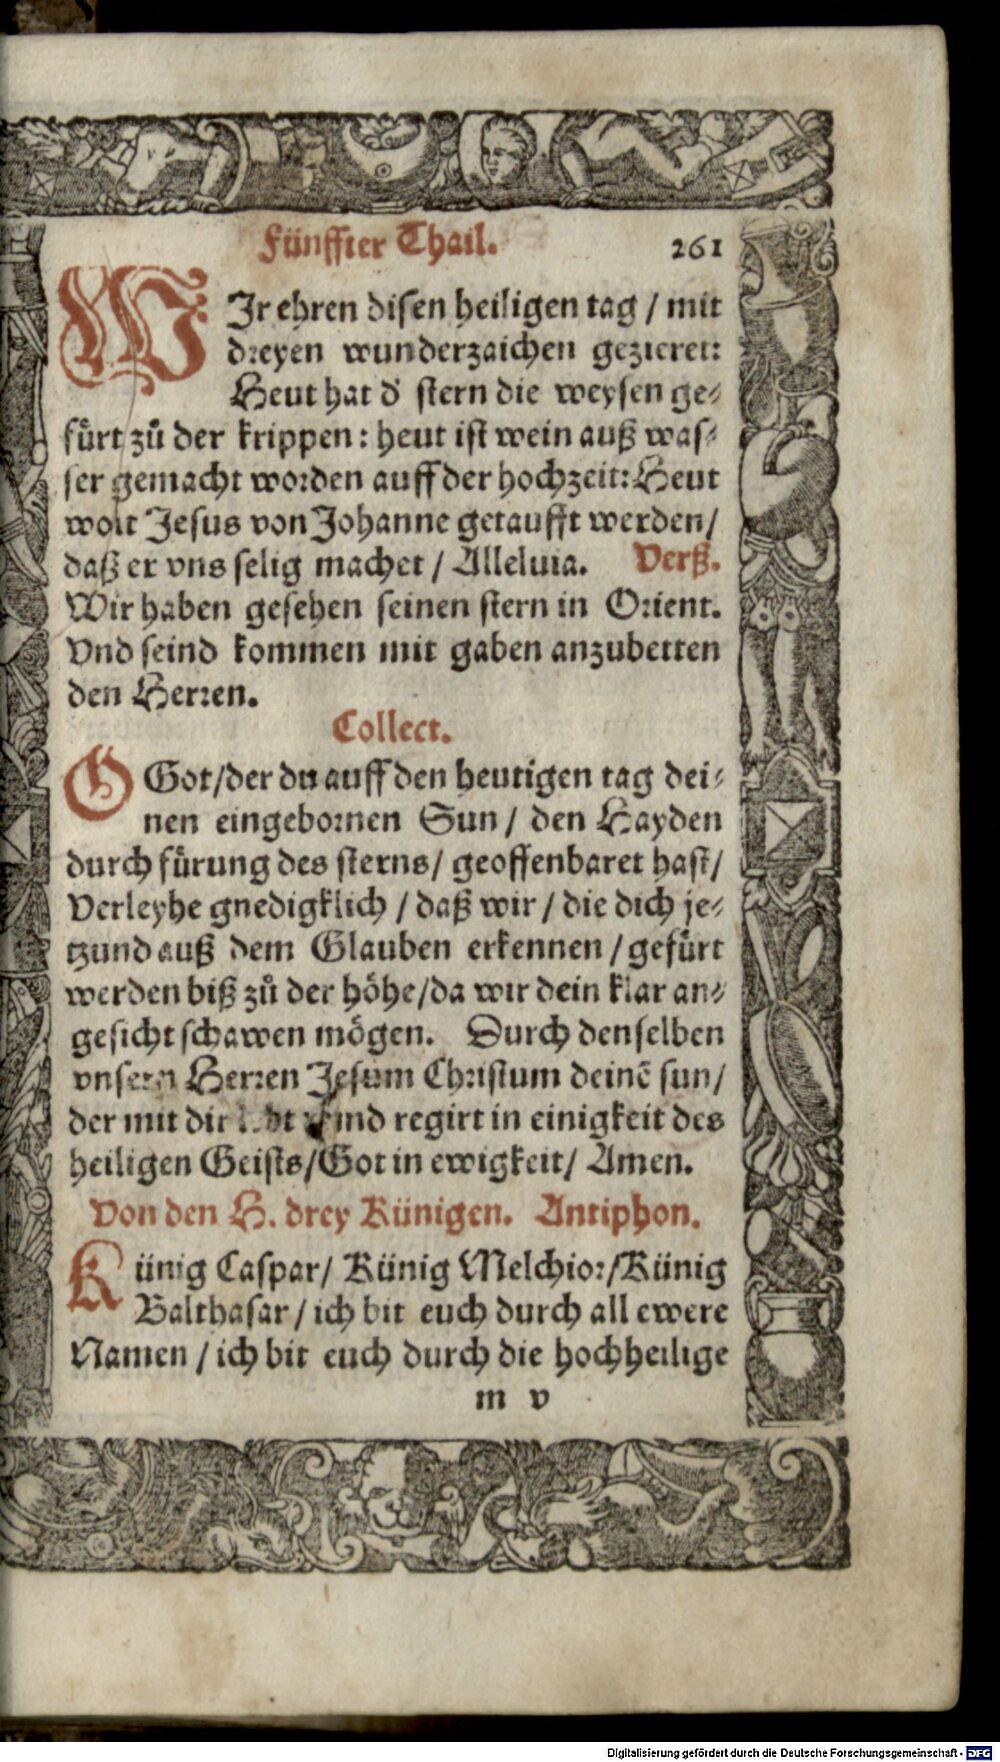 Fünffter Thail. 261
WIr ehren disen heiligen tag / mit
dreyen wunderzaichen gezieret:
Heut hat d' stern die weysen ge-
fůrt zů der krippen: heut ist wein auß was-
ser gemacht worden auff der hochzeit: Heut
wolt Jesus von Johanne getaufft werden /
daß er vns selig machet / Alleluia. Verß.
Wir haben gesehen seinen stern in Orient.
Vnd seind kommen mit gaben anzubetten
den Herren.
Collect.
O Got / der du auff den heutigen tag dei-
nen eingebornen Sun / den Hayden
durch fůrung des sterns / geoffenbaret hast /
Verleyhe gnedigklich / daß wir / die dich je-
tzund auß dem Glauben erkennen / gefůrt
werden biß zů der höhe / da wir dein klar an-
gesicht schawen mögen. Durch denselben
vnsern Herren Jesum Christum deinē sun /
der mit dir vnd regirt in einigkeit des
heiligen Geists / Got in ewigkeit / Amen.
Von den H. drey Künigen. Antiphon.
Künig Caspar / Künig Melchior / Künig
Balthasar / ich bit euch durch all ewere
Namen / ich bit euch durch die hochheilige
m v
Digitalisierung gefördert durch die Deutsche Forschungsgemeinschaft - DFG